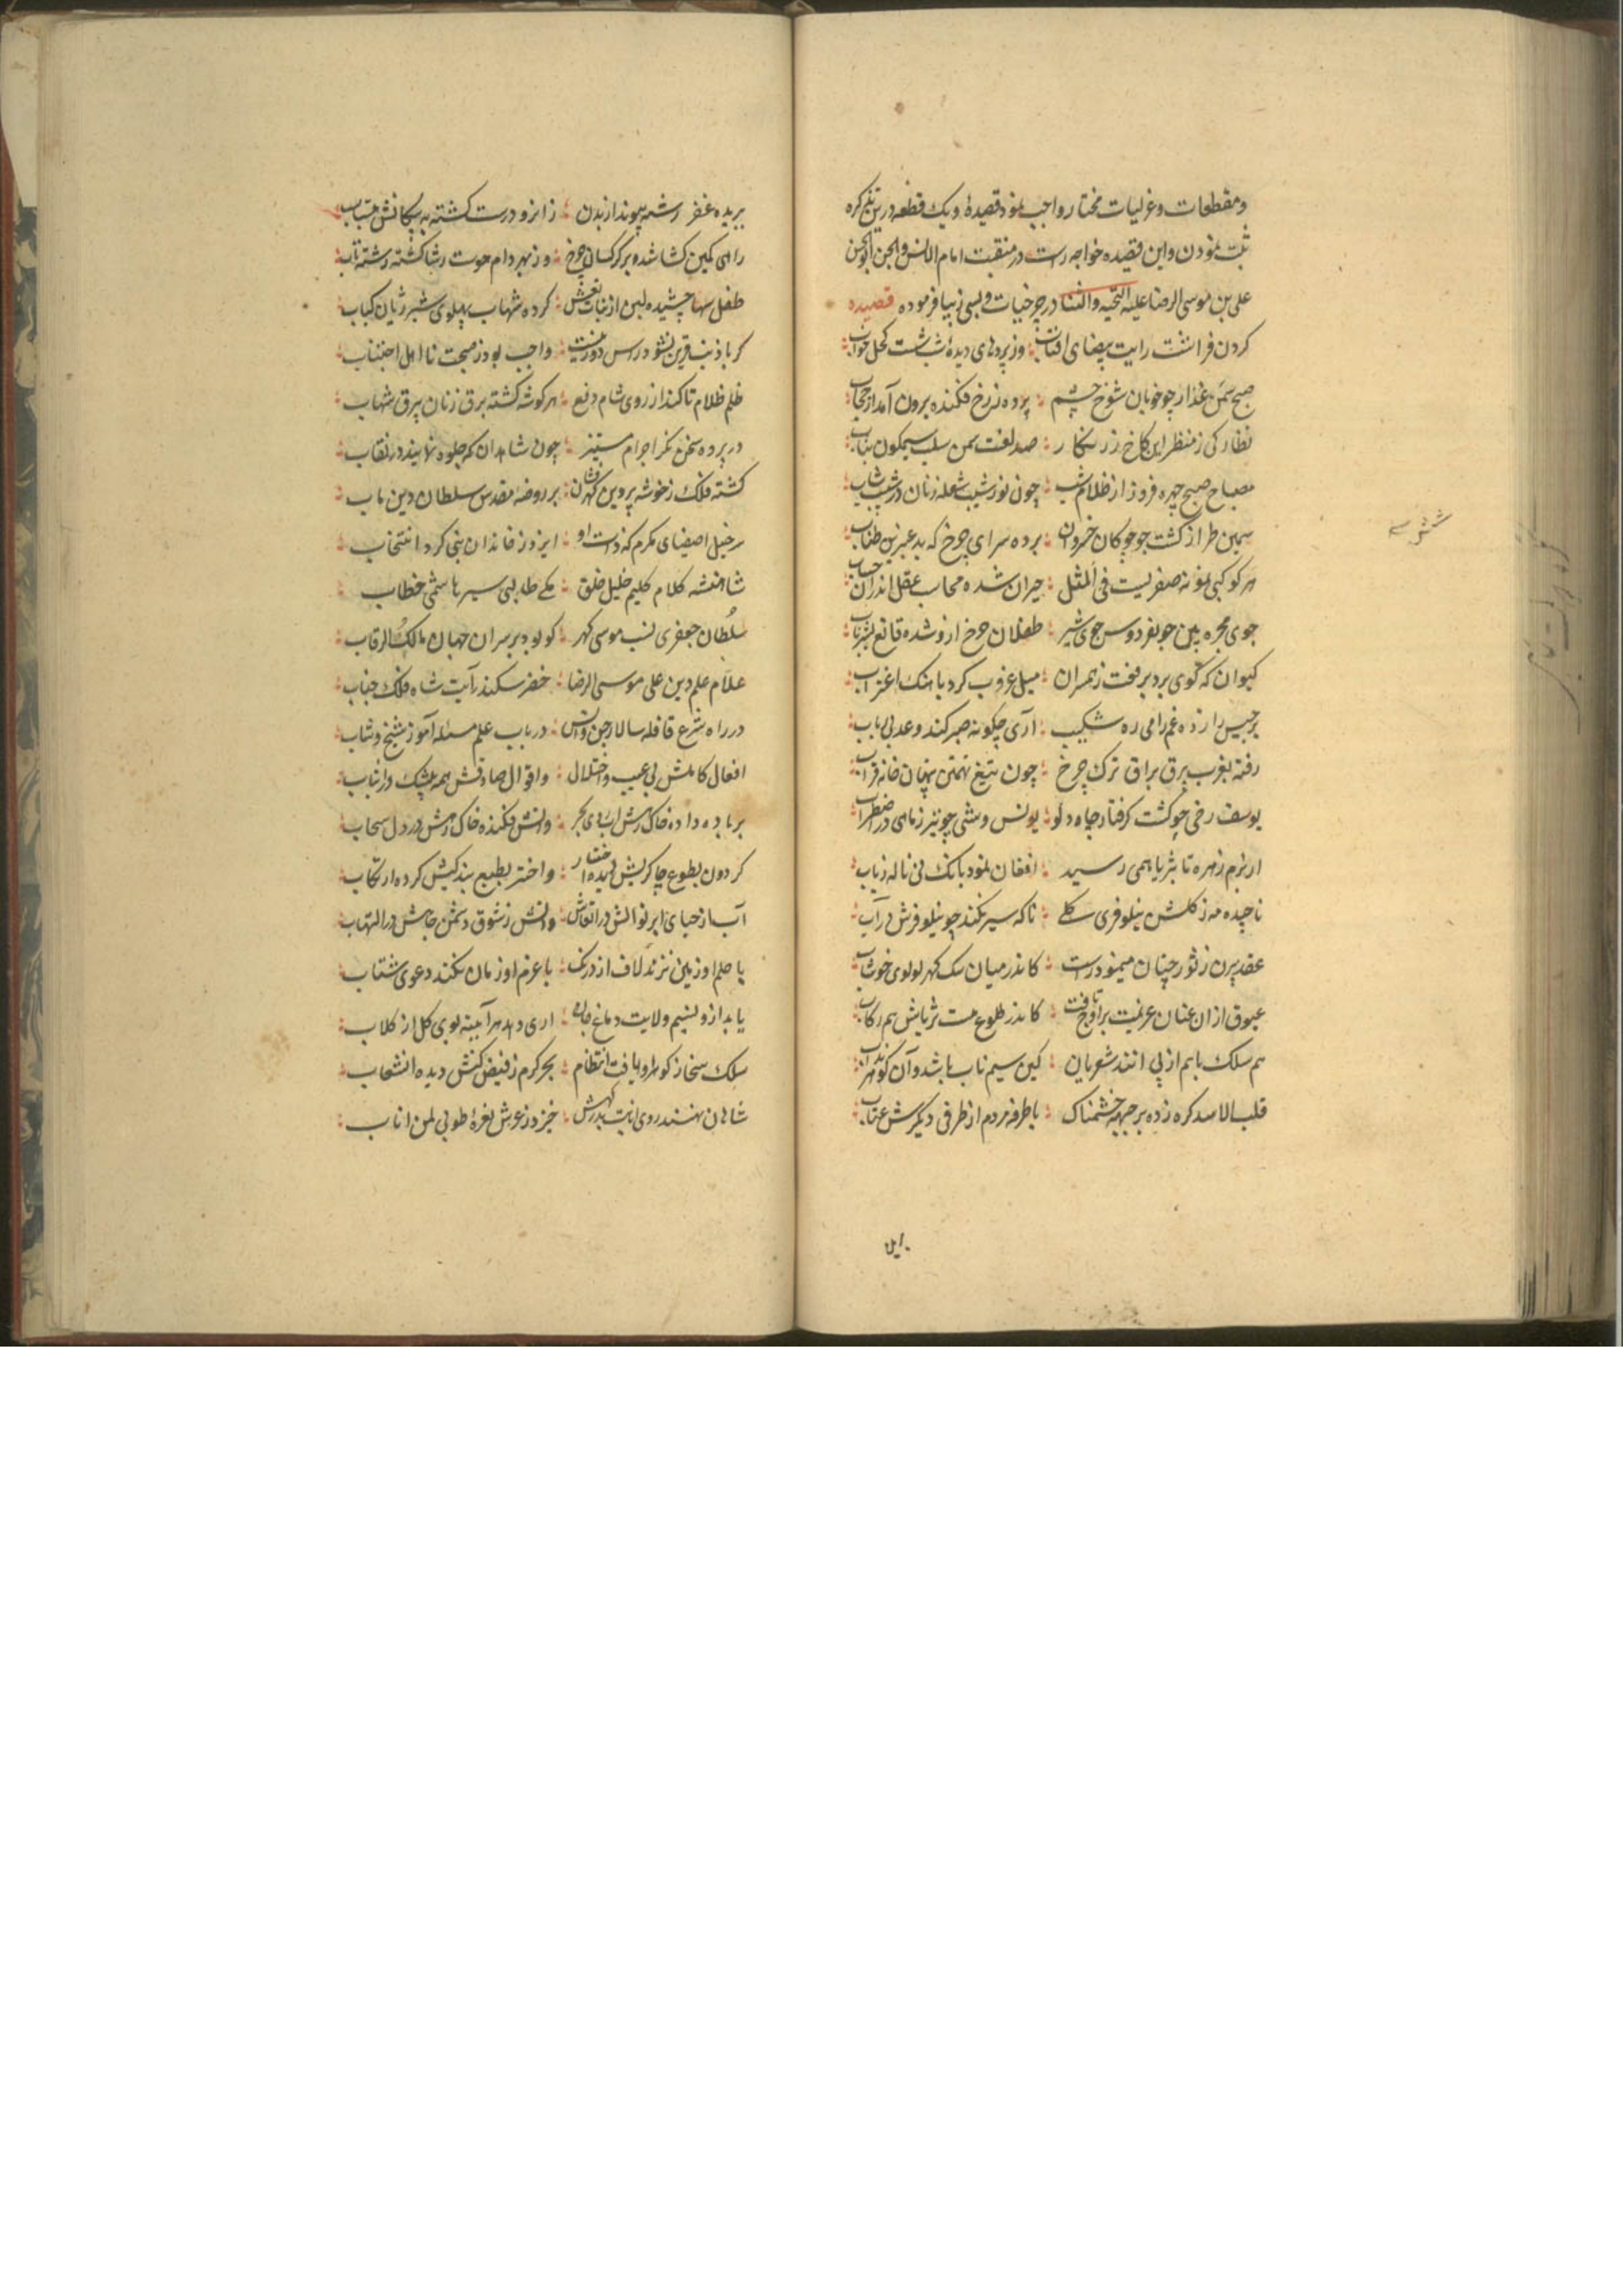 ومقطعات وغزلیات مختار واجب نمود قصیدهٔ ویک قطعه درین تذکره
ثبت نمودن واین قصیده خواجه راست در منقبت امام الانس والجن ابو الحسن
علی بن موسی الرضا علیه التحیه والثنا در چرخیات وبسی زیبا فرموده قصیده
کردن فراشت رایت بیضای افتاب وز پردهای دیدهٔ شب شست کحل خواب
صبح سمن عذار چو خوبان شوخ چشم پرده ز رخ فکنده برون آمد از حجاب
نظارکی ز منظر این کاخ زرنکار صد لعبت سمن سلب سیمکون نقاب
مصباح صبح چهره فروز از ظلام شب چون نور شیب شعله زنان در شب شباب
سیمین طراز کشت چو چوکان خسروان پرده سرای چرخ که بد عنبرین طناب
هر کوکبی نمونه صفریست فی المثل حیران شده محاسب عقل اندران حساب
جوی مجره بین چو بفردوس جوی شیر طفلان چرخ ازو شده قانع بشیر ناب
کیوان که کوی برد برفعت ز همسران میل غروب کرد باهنک اغتراب
برجیس را زده غم رامی ره شکیب آری چکونه صبر کند وعد بی رباب
رفته بغرب برق براق ترک چرخ چون تیغ تهمتن بنهان خانه قراب
یوسف رخی چو کشت کرفتار چاه دلو یونس وشی چو تیر ز ماهی در اضطراب
از بزم زهره تا بثریا همی رسید افغان نمود بانک نی ناله رباب
ناچیده مه ز کلشن نیلوفری کلی ناکه سپر فکند چو نیلوفرش در آب
عقد پرن ز ثور چنان مینمود راست کاندر میان سک کهر لولوی خوشاب
عیوق ازان عنان عزیمت بر اوج تافت کاندر طلوع هست ثریاش هم رکاب
هم سلک باهم از پی انند شعریان کین سیم ناب باشد وآن کوهر مذاب
قلب الاسد کره زده بر جبهه خشمناک با طرفه مردم از طرفی دیکرش عتاب
برید
ببریده غفر رشته پیوند از بدن زانرو درست کشته به پیکانش
رامی کمین کشا شده بر کرکسان چرخ وز بهر دام حوت رشا کشته رشته تاب
طفل سها چشیده لبن از بنات نعش کرده شهاب پهلوی شیر ژیان کباب
کر با ذنب قرین نشود راس دور نیست واجب بود ز صحبت نا اهل اجتناب
ظلم ظلام تا کند از روی شام دفع هر کوشه کشته برق زنان بیرق شهاب
در پرده سخن نکر اجرام مستنیر چون شاهدان که جلوه نمایند در نقاب
کشته فلک ز خوشه پروین کهر فشان بر روضه مقدس سلطان دین ماب
سرخیل اصفیای مکرم که ذات او ایزد ز خاندان نبی کرد انتخاب
شاهنشه کلام کلیم خلیل خلق مکی طالبی سیر هاشمی خطاب
سلطان جعفری نسب موسوی کهر کو بود بر سران جهان مالک الرقاب
علام علم دین علی موسی الرضا خضر سکندر آیت شاه فلک جناب
در راه شرع قافله سالار جن وانس در باب علم مسئله آموز شیخ وشاب
افعال کاملش بی عیب واختلال واقوال صادقش همه بیشک وارتیاب
بر باد داده خاک رهش آبروی بحر وآتش فکنده خاک رهش در دل سحاب
کردون بطوع چاکریش کرده اختیار واختر بطبع بندکیش کرده ارتکاب
آب از حیای ابر نوالش در ارتعاش واتش ز شوق دشمن جاهش در التهاب
با حلم او زمین نزند لاف از درنک با عزم او زمان نکند دعوی شتاب
یابد ازو نسیم ولایت دماغ جان اری دهد هر آینه بوی کل از کلاب
سلک سخا ز کوهر او یافت انتظام بحر کرم ز فیض کفش دیده انشعاب
شاهان نهند روی انابت بدرکهش خیزد ز عرش نغرهٔ طوبی لمن اناب